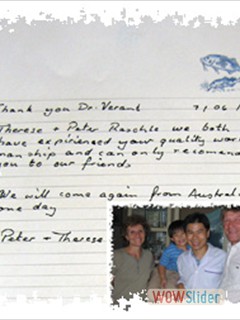 Thank you Dr. Verant 7/04/
Therese + Peter Raschle we both
have expierienced your quality wor
manship and can only recomen
you to our friends.
We will come again from Austral
one day
Peter + Therese
WOWSlider